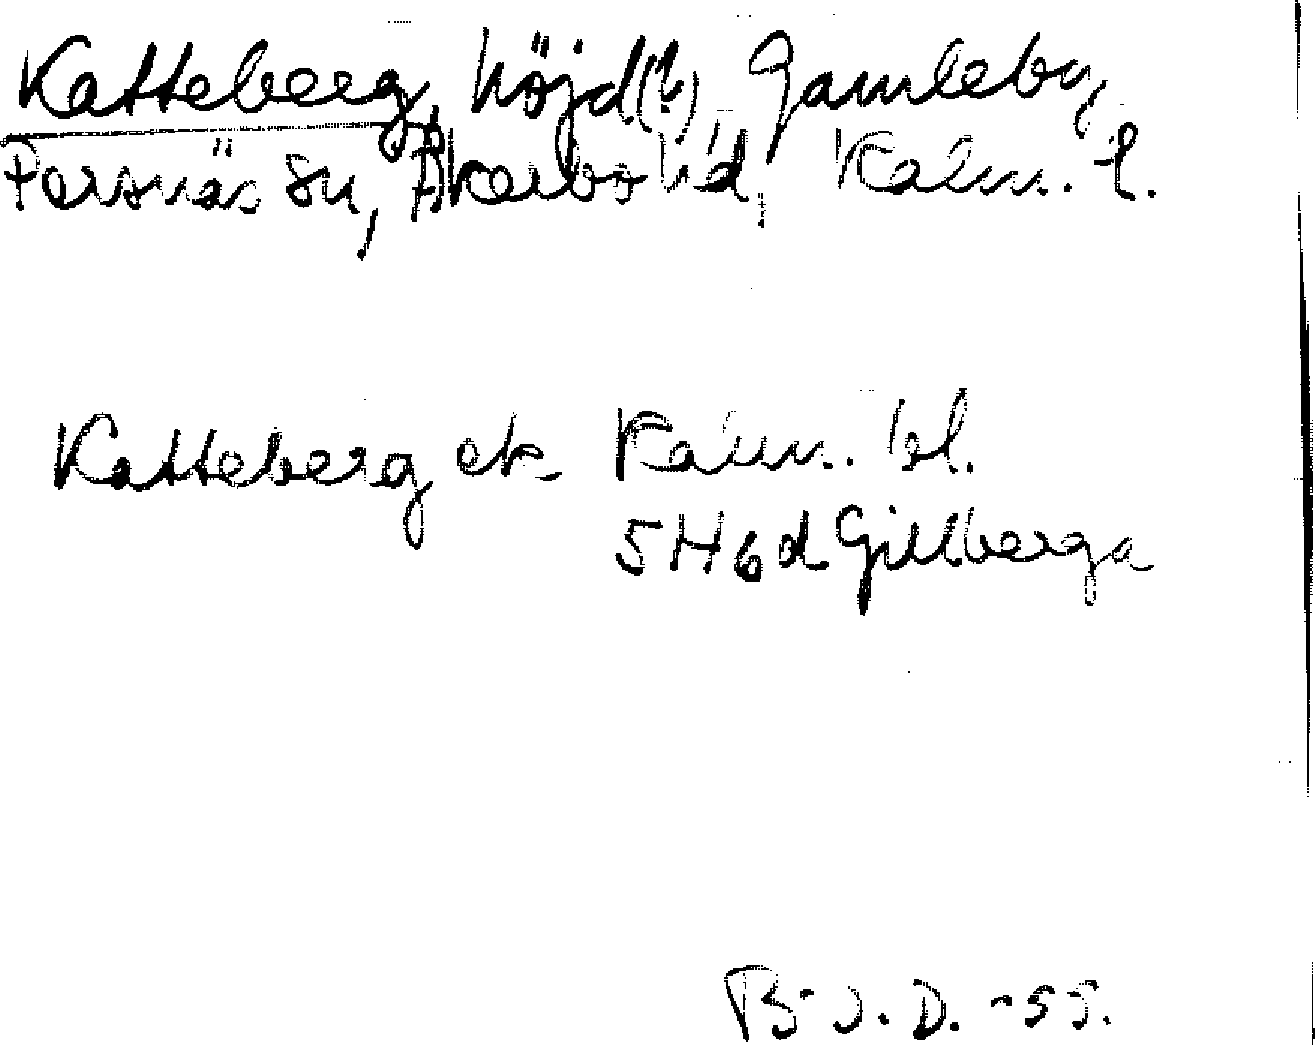 Katteberg, höjd(?) Gamleby,
Persnäs sn, Åkerbo hd, Kalm. l.
Katteberg ek. Kalm. bl.
5H6d Gillberga
B-J.D. -55.